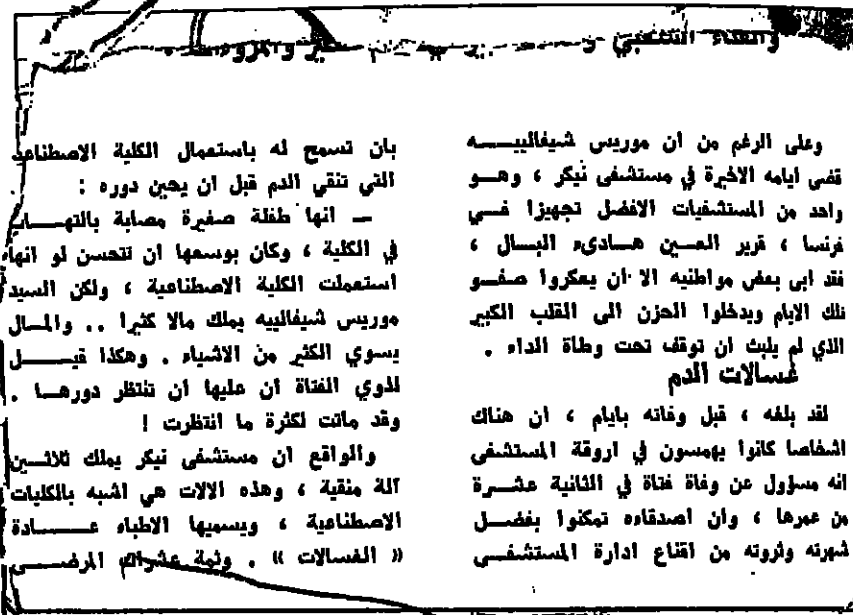 والغناء الشعبي
وعلى الرغم من ان موريس شيفالييـــه
قضى ايامه الاخيرة في مستشفى نيكر ، وهـــو
واحد من المستشفيات الافضل تجهيزا فـــي
فرنسا ، قرير العـــين هـــادىء البـــال ،
فقد ابى بعض مواطنيه الا ان يعكروا صفـــو
تلك الايام ويدخلوا الحزن الى القلب الكبير
الذي لم يلبث ان توقف تحت وطاة الداء .
غسالات الدم
لقد بلغه ، قبل وفاته بايام ، ان هناك
اشخاصا كانوا يهمسون في اروقة المستشفى
انه مسؤول عن وفاة فتاة في الثانية عشـــرة
من عمرها ، وان اصدقاءه تمكنوا بفضـــل
شهرته وثروته من اقناع ادارة المستشفـــى
بان تسمح له باستعمال الكلية الاصطناعية
التي تنقي الدم قبل ان يحين دوره :
ـــ انها طفلة صغيرة مصابة بالتهـــاب
في الكلية ، وكان بوسعها ان تتحسن لو انها
استعملت الكلية الاصطناعية ، ولكن السيد
موريس شيفالييه يملك مالا كثيرا .. والمـــال
يسوي الكثير من الاشياء . وهكذا قيـــل
لذوي الفتاة ان عليها ان تنتظر دورهـــا .
وقد ماتت لكثرة ما انتظرت !
والواقع ان مستشفى نيكر يملك ثلاثـــين
آلة منقية ، وهذه الالات هي اشبه بالكليات
الاصطناعية ، ويسميها الاطباء عـــــادة
« الغسالات » . وثمة عشرات المرضـــى